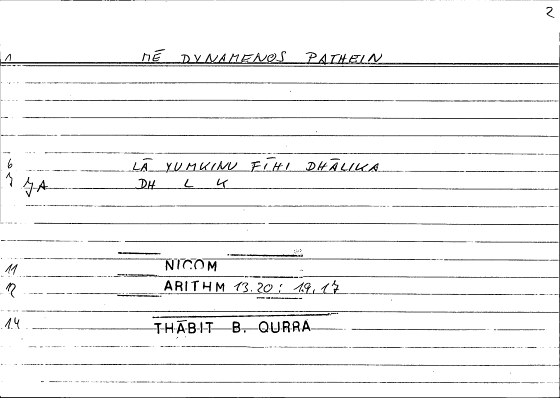 2
1 MĒ DYNAMENOS PATHEIN
6 LĀ YUMKINU FĪHI DHĀLIKA
7 7A DH L K
11 NICOM
12 ARITHM 13.20 : 19,17
14 THĀBIT B. QURRA